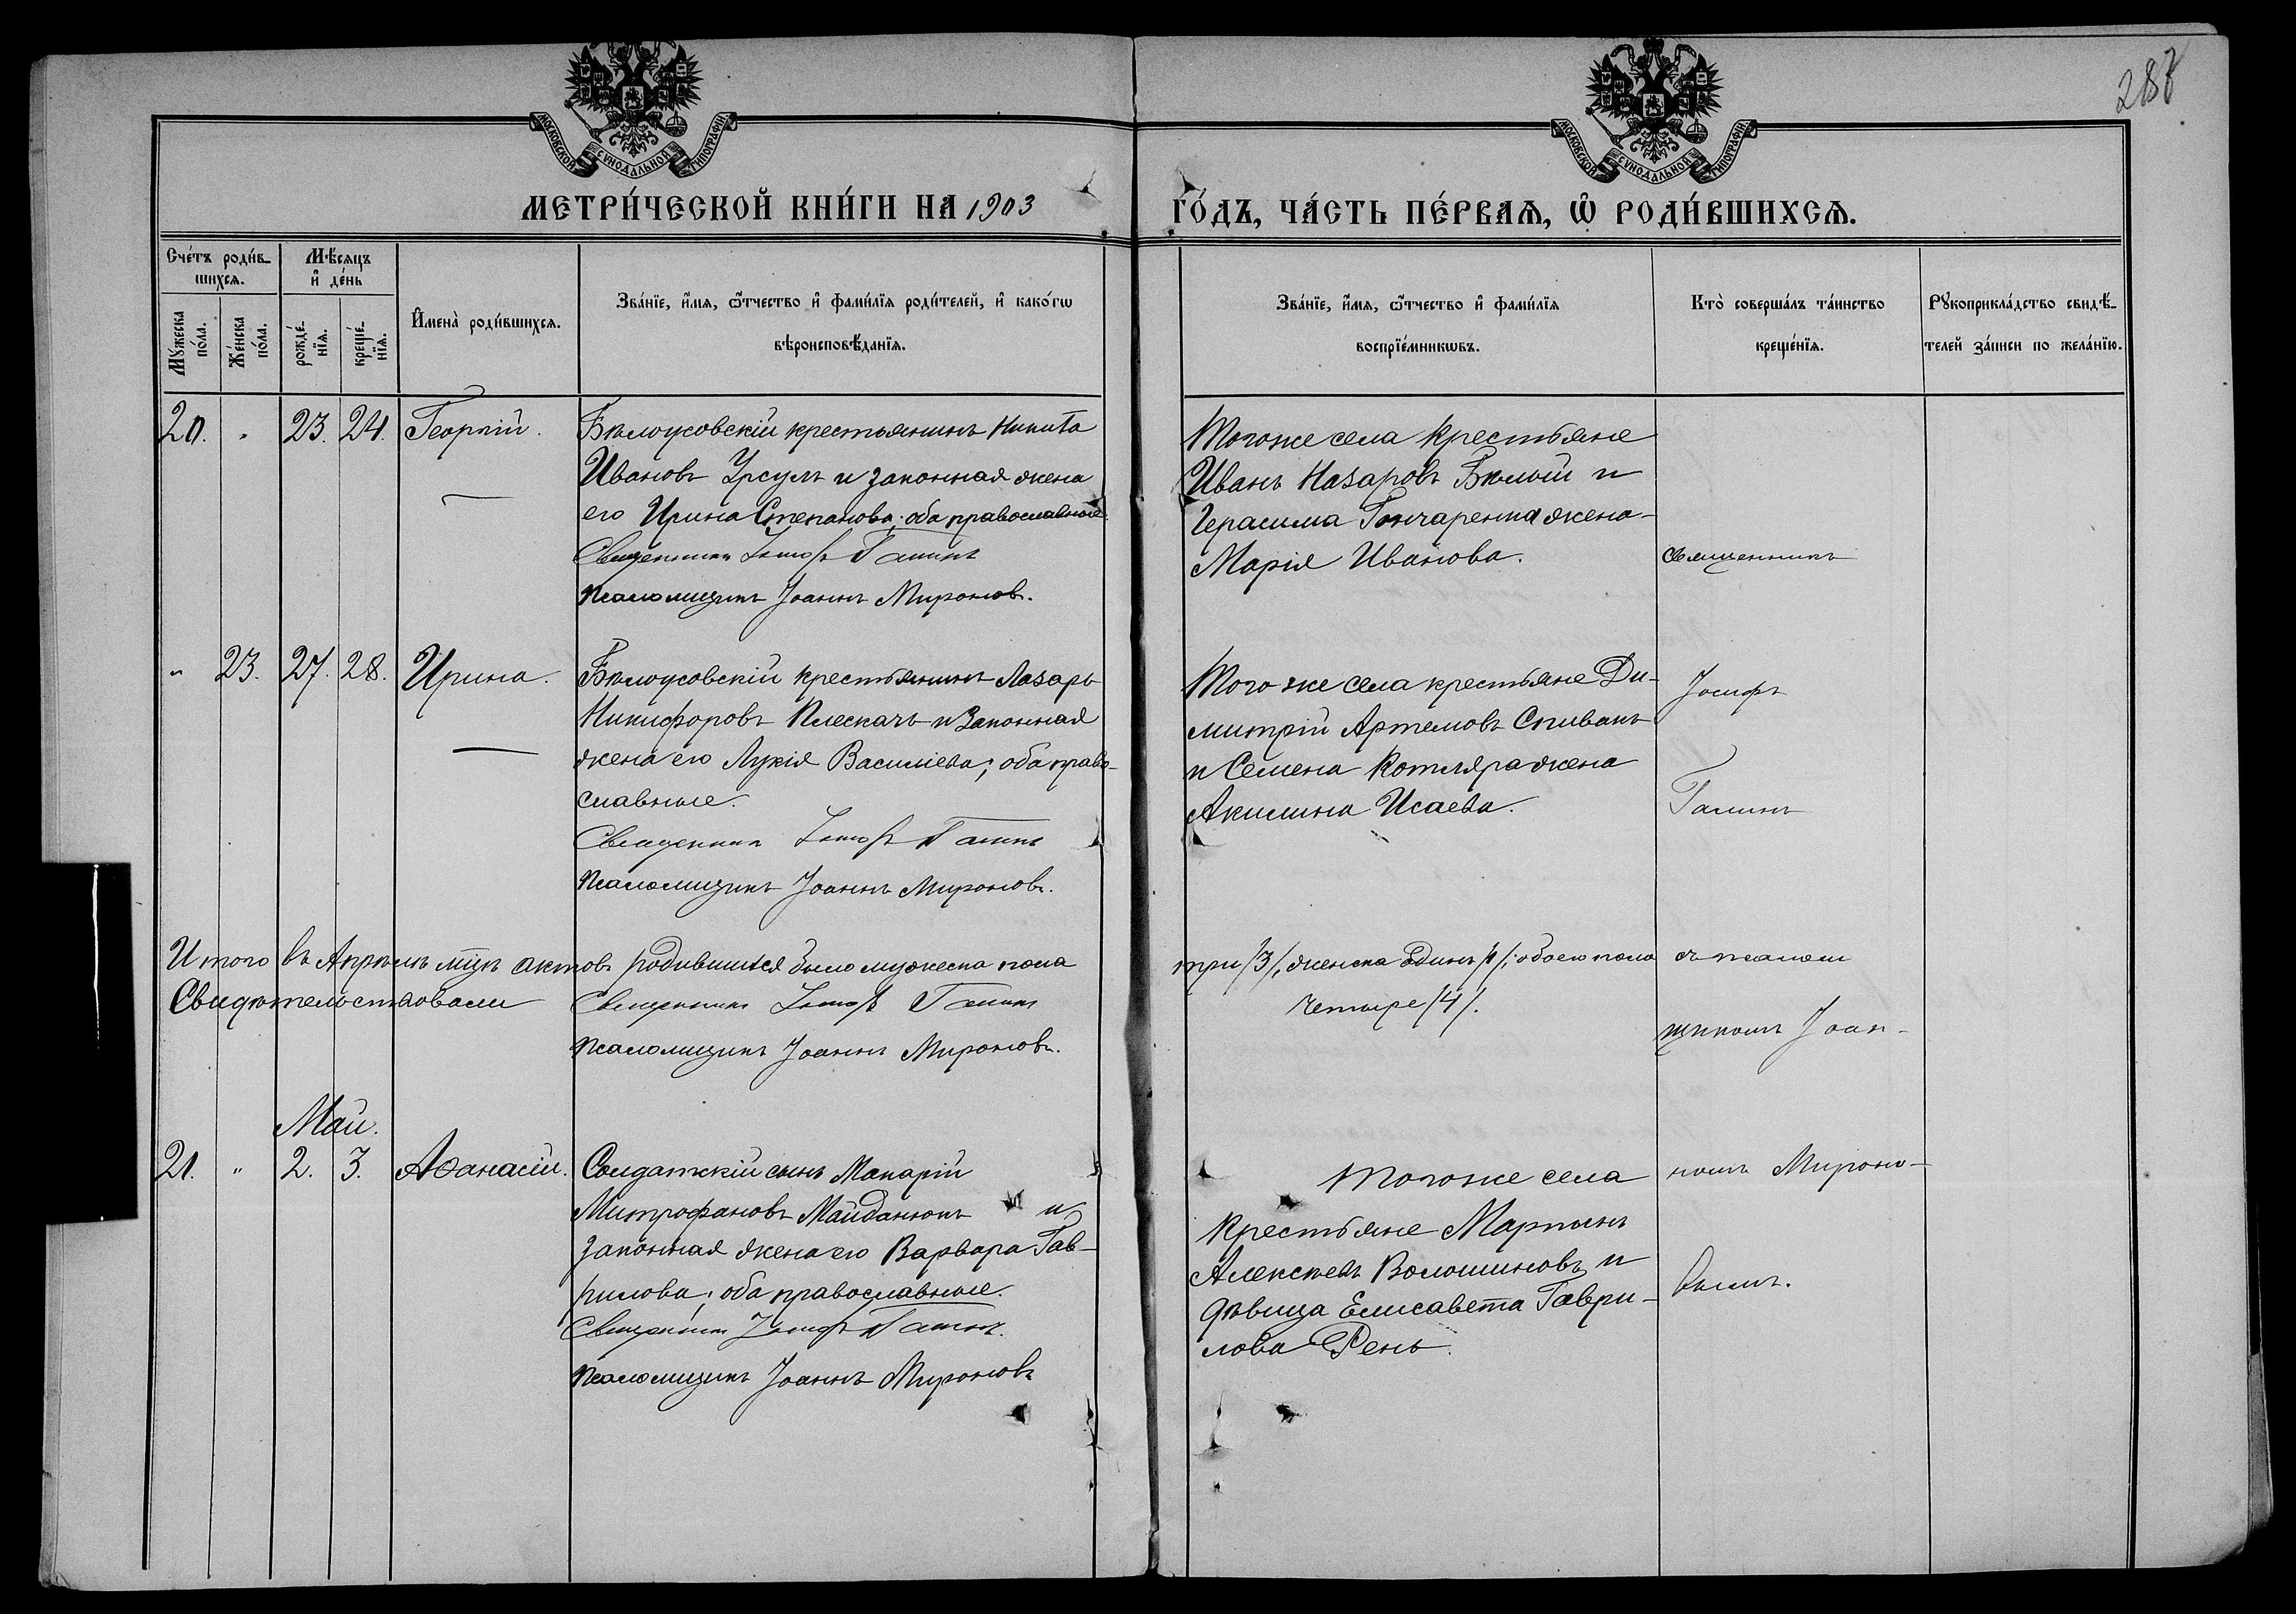 287
МОСКОВСКОЙ СѴНОДАЛЬНОЙ ТИПОГРАФІИ
МОСКОВСКОЙ СѴНОДАЛЬНОЙ ТИПОГРАФІИ
МЕТРИ́ЧЕСКОЙ КНИ́ГИ НА 1903 ГО́ДЪ, ЧА́СТЬ ПЕ́РВАѦ, Ѽ РОДИ́ВШИХСѦ.
Сче́тъ роди́в-
шихсѧ.
Му́жеска по́ла.
Же́нска по́ла.
Мѣ́сѧцъ и҆ де́нь
рожде́-
нїѧ.
креще́-
нїѧ.
И҆мена̀ роди́вшихсѧ.
Зва́нїе, и҆́мѧ, ѻ҆́тчество и҆ фами́лїѧ роди́телей, и҆ како́гѡ
вѣроисповѣ́данїѧ.
Зва́нїе, и҆́мѧ, ѻ҆́тчество и҆ фами́лїѧ
воспрїе́мникѡвъ.
Кто̀ соверша́лъ та́инство
креще́нїѧ.
Рꙋкоприкла́дство свидѣ́-
телей за́писи по жела́нїю.
20. " 23. 24. Георгій.
Бѣлоусовскій крестьянинъ Никита
Ивановъ Урсулъ и законная жена
его Ирина Степанова; оба православные.
Священникъ Іосифъ Галинъ
Псаломщикъ Іоаннъ Мироновъ.
Того же села крестьяне
Иванъ Назаровъ Бѣлый и
Герасима Гончаренка жена
Марія Иванова.
Священникъ
" 23. 27. 28. Ирина.
Бѣлоусовскій крестьянинъ Лазарь
Никифоровъ Плескачъ и законная
жена его Лукія Василіева; оба право-
славные.
Священникъ Іосифъ Галинъ
Псаломщикъ Іоаннъ Мироновъ.
Того же села крестьяне Ди-
митрій Артемовъ Спивакъ
и Семена Котляра жена
Акилина Исаева.
Іосифъ
Галинъ
Итого въ Апрѣлѣ мцѣ актовъ родившихся было мужеска пола
три /3/, женска одинъ /1/; обоего пола
четыре /4/.
Свидѣтельствовали
Священникъ Іосифъ Галинъ
Псаломщикъ Іоаннъ Мироновъ.
съ псалом
щикомъ Іоан-
Май.
21. " 2. 3. Аѳанасій.
Солдатскій сынъ Макарій
Митрофановъ Майданюкъ и
законная жена его Варвара Гав-
рилова; оба православные.
Священникъ Іосифъ Галинъ.
Псаломщикъ Іоаннъ Мироновъ
Того же села
крестьяне Мартынъ
Алексѣевъ Волошиновъ и
дѣвица Елисавета Гаври-
лова Рень.
номъ Мироно-
вымъ.